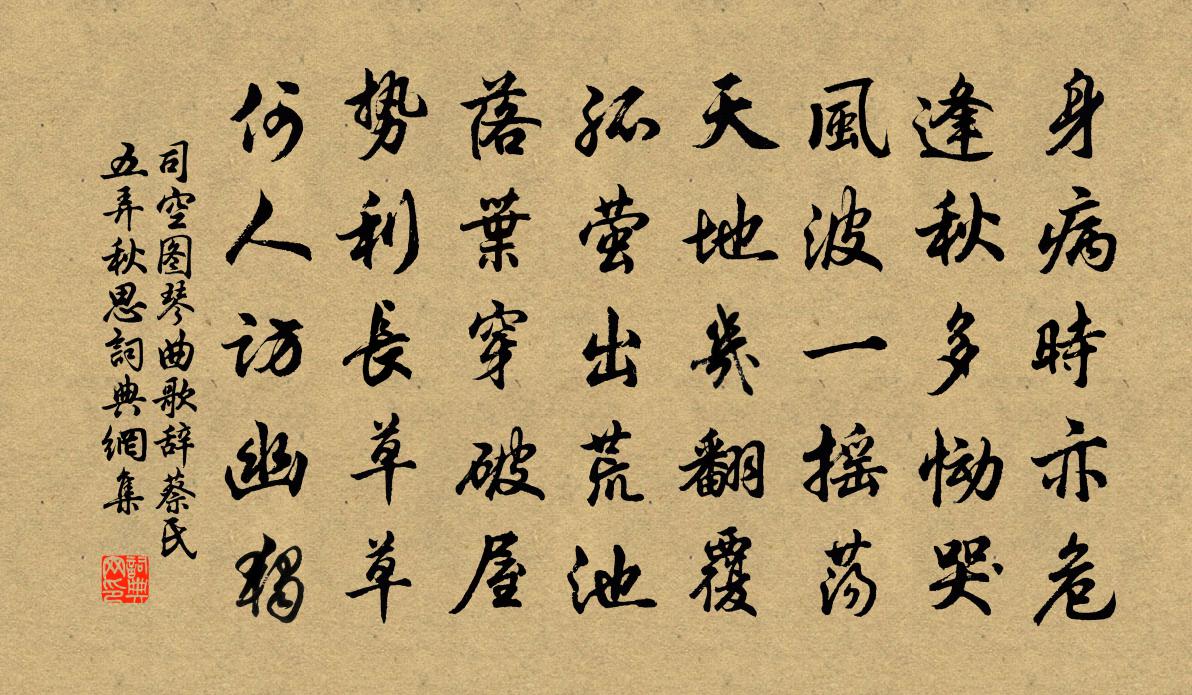 身病時亦危
逢秋多慟哭
風波一摇荡
天地幾翻覆
孤萤出荒池
落葉穿破屋
勢利長草草
何人訪幽獨
司空图琴曲歌辞蔡氏
五弄秋思詞典網集
詞典
网印